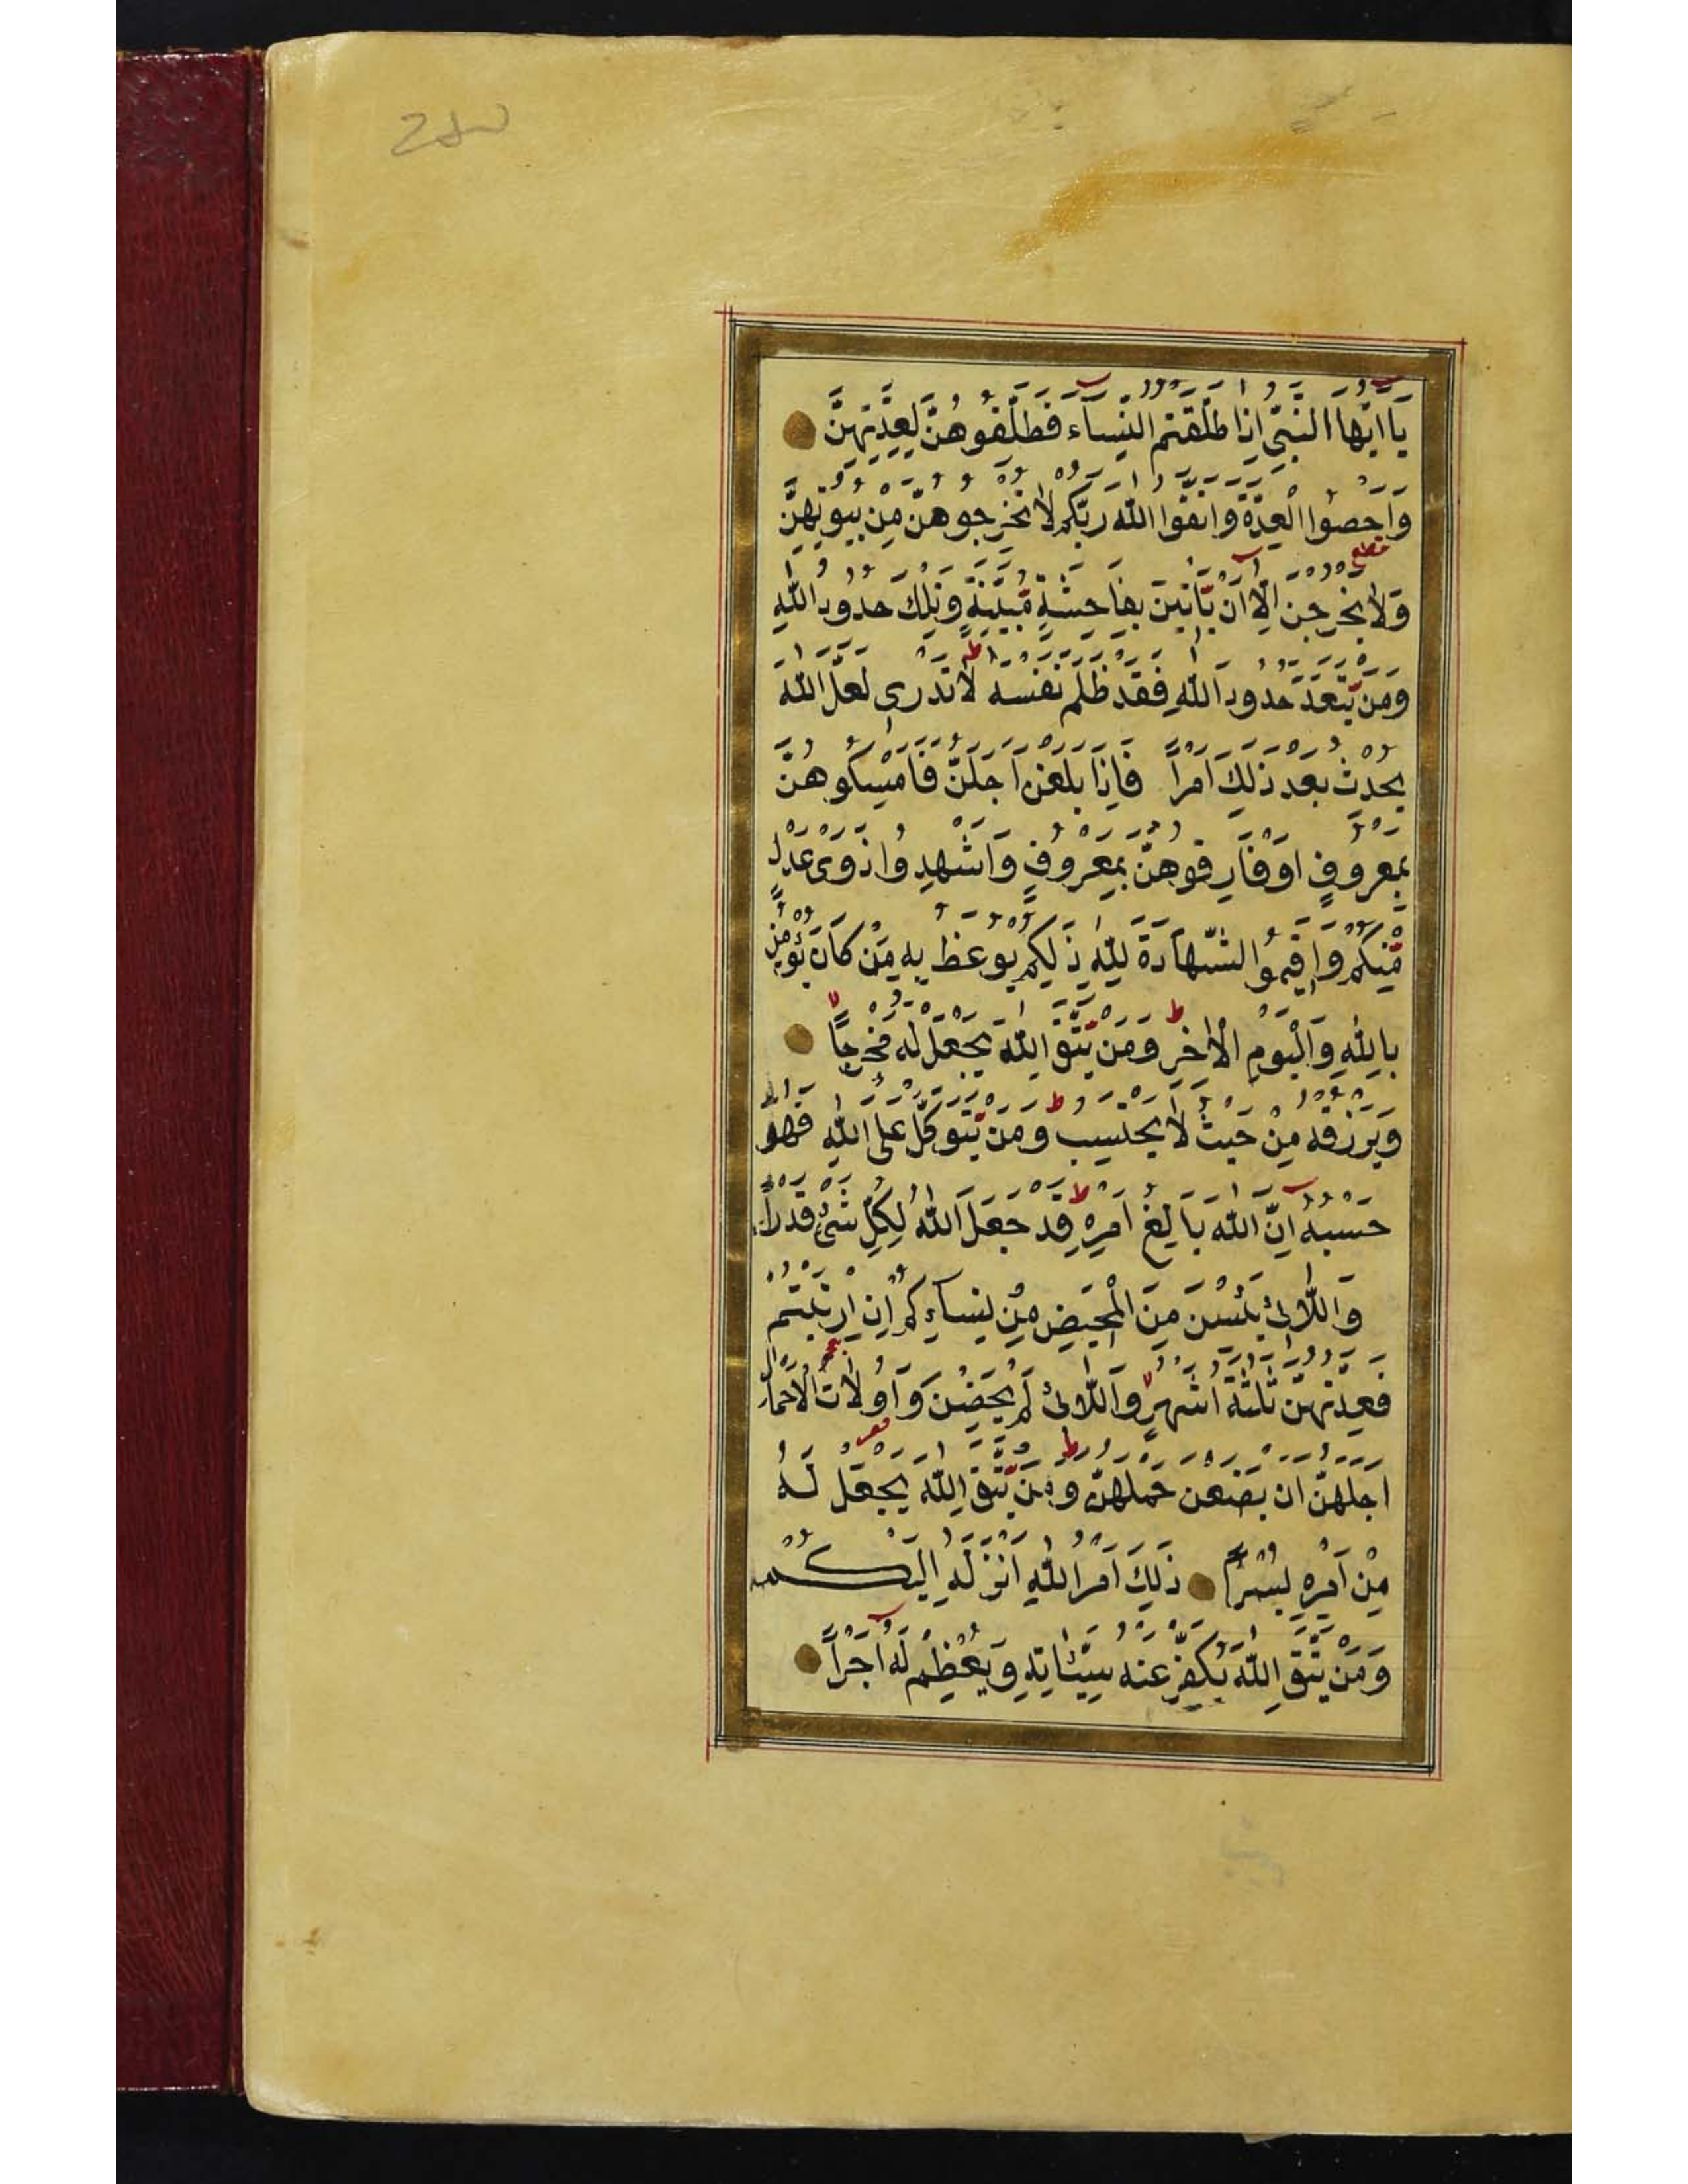 يَا اَيُّهَا النَّبِىُّ اِذَا طَلَّقْتُمُ النِّسَآءَ فَطَلِّقُوهُنَّ لِعِدَّتِهِنَّ
وَاَحْصُوا الْعِدَّةَ وَاتَّقُوا اللّٰهَ رَبَّكُمْ لَا تُخْرِجُوهُنَّ مِنْ بُيُوتِهِنَّ
وَلَا يَخْرُجْنَ اِلَّا اَنْ يَّاْتِيْنَ بِفَاحِشَةٍ مُّبَيِّنَةٍ وَتِلْكَ حُدُودُ اللّٰهِ
وَمَنْ يَّتَعَدَّ حُدُودَ اللّٰهِ فَقَدْ ظَلَمَ نَفْسَهُ لَا تَدْرِى لَعَلَّ اللّٰهَ
يُحْدِثُ بَعْدَ ذٰلِكَ اَمْرًا فَاِذَا بَلَغْنَ اَجَلَهُنَّ فَاَمْسِكُوهُنَّ
بِمَعْرُوفٍ اَوْ فَارِقُوهُنَّ بِمَعْرُوفٍ وَاَشْهِدُوا ذَوَىْ عَدْلٍ
مِّنْكُمْ وَاَقِيمُوا الشَّهَادَةَ لِلّٰهِ ذٰلِكُمْ يُوعَظُ بِهِ مَنْ كَانَ يُؤْمِنُ
بِاللّٰهِ وَالْيَوْمِ الْاٰخِرِ وَمَنْ يَّتَّقِ اللّٰهَ يَجْعَلْ لَهُ مَخْرَجًا
وَيَرْزُقْهُ مِنْ حَيْثُ لَا يَحْتَسِبُ وَمَنْ يَّتَوَكَّلْ عَلَى اللّٰهِ فَهُوَ
حَسْبُهُ اِنَّ اللّٰهَ بَالِغُ اَمْرِهِ قَدْ جَعَلَ اللّٰهُ لِكُلِّ شَىْءٍ قَدْرًا
وَاللَّائِى يَئِسْنَ مِنَ الْمَحِيضِ مِنْ نِسَآءِكُمْ اِنِ ارْتَبْتُمْ
فَعِدَّتُهُنَّ ثَلٰثَةُ اَشْهُرٍ وَاللَّائِى لَمْ يَحِضْنَ وَاُولَاتُ الْاَحْمَالِ
اَجَلُهُنَّ اَنْ يَضَعْنَ حَمْلَهُنَّ وَمَنْ يَّتَّقِ اللّٰهَ يَجْعَلْ لَهُ
مِنْ اَمْرِهِ يُسْرًا ذٰلِكَ اَمْرُ اللّٰهِ اَنْزَلَهُ اِلَيْكُمْ
وَمَنْ يَّتَّقِ اللّٰهَ يُكَفِّرْ عَنْهُ سَيِّئَاتِهِ وَيُعْظِمْ لَهُ اَجْرًا